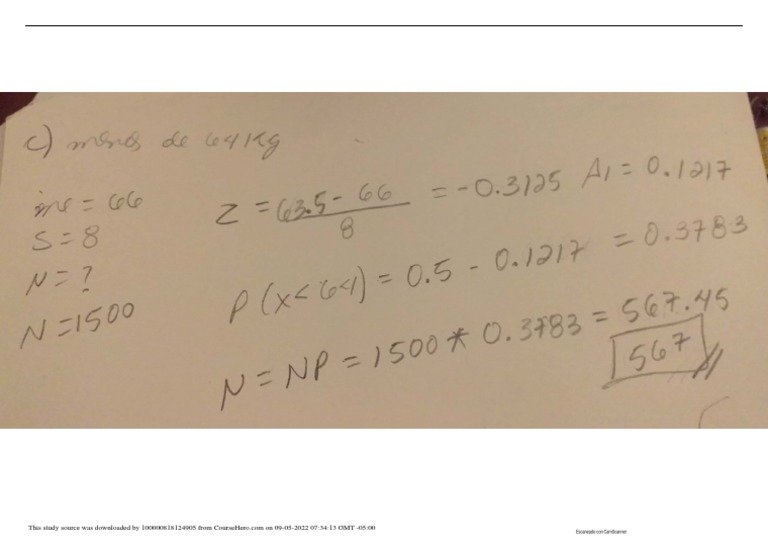 c) menos de 64 Kg
me = 66
S = 8
N = ?
N = 1500
Z = 63.5 - 66 / 8 = -0.3125 A1 = 0.1217
P (x < 64) = 0.5 - 0.1217 = 0.3783
N = NP = 1500 * 0.3783 = 567.45
567
This study source was downloaded by 100000818124905 from CourseHero.com on 09-05-2022 07:34:13 GMT -05:00
Escaneado con CamScanner